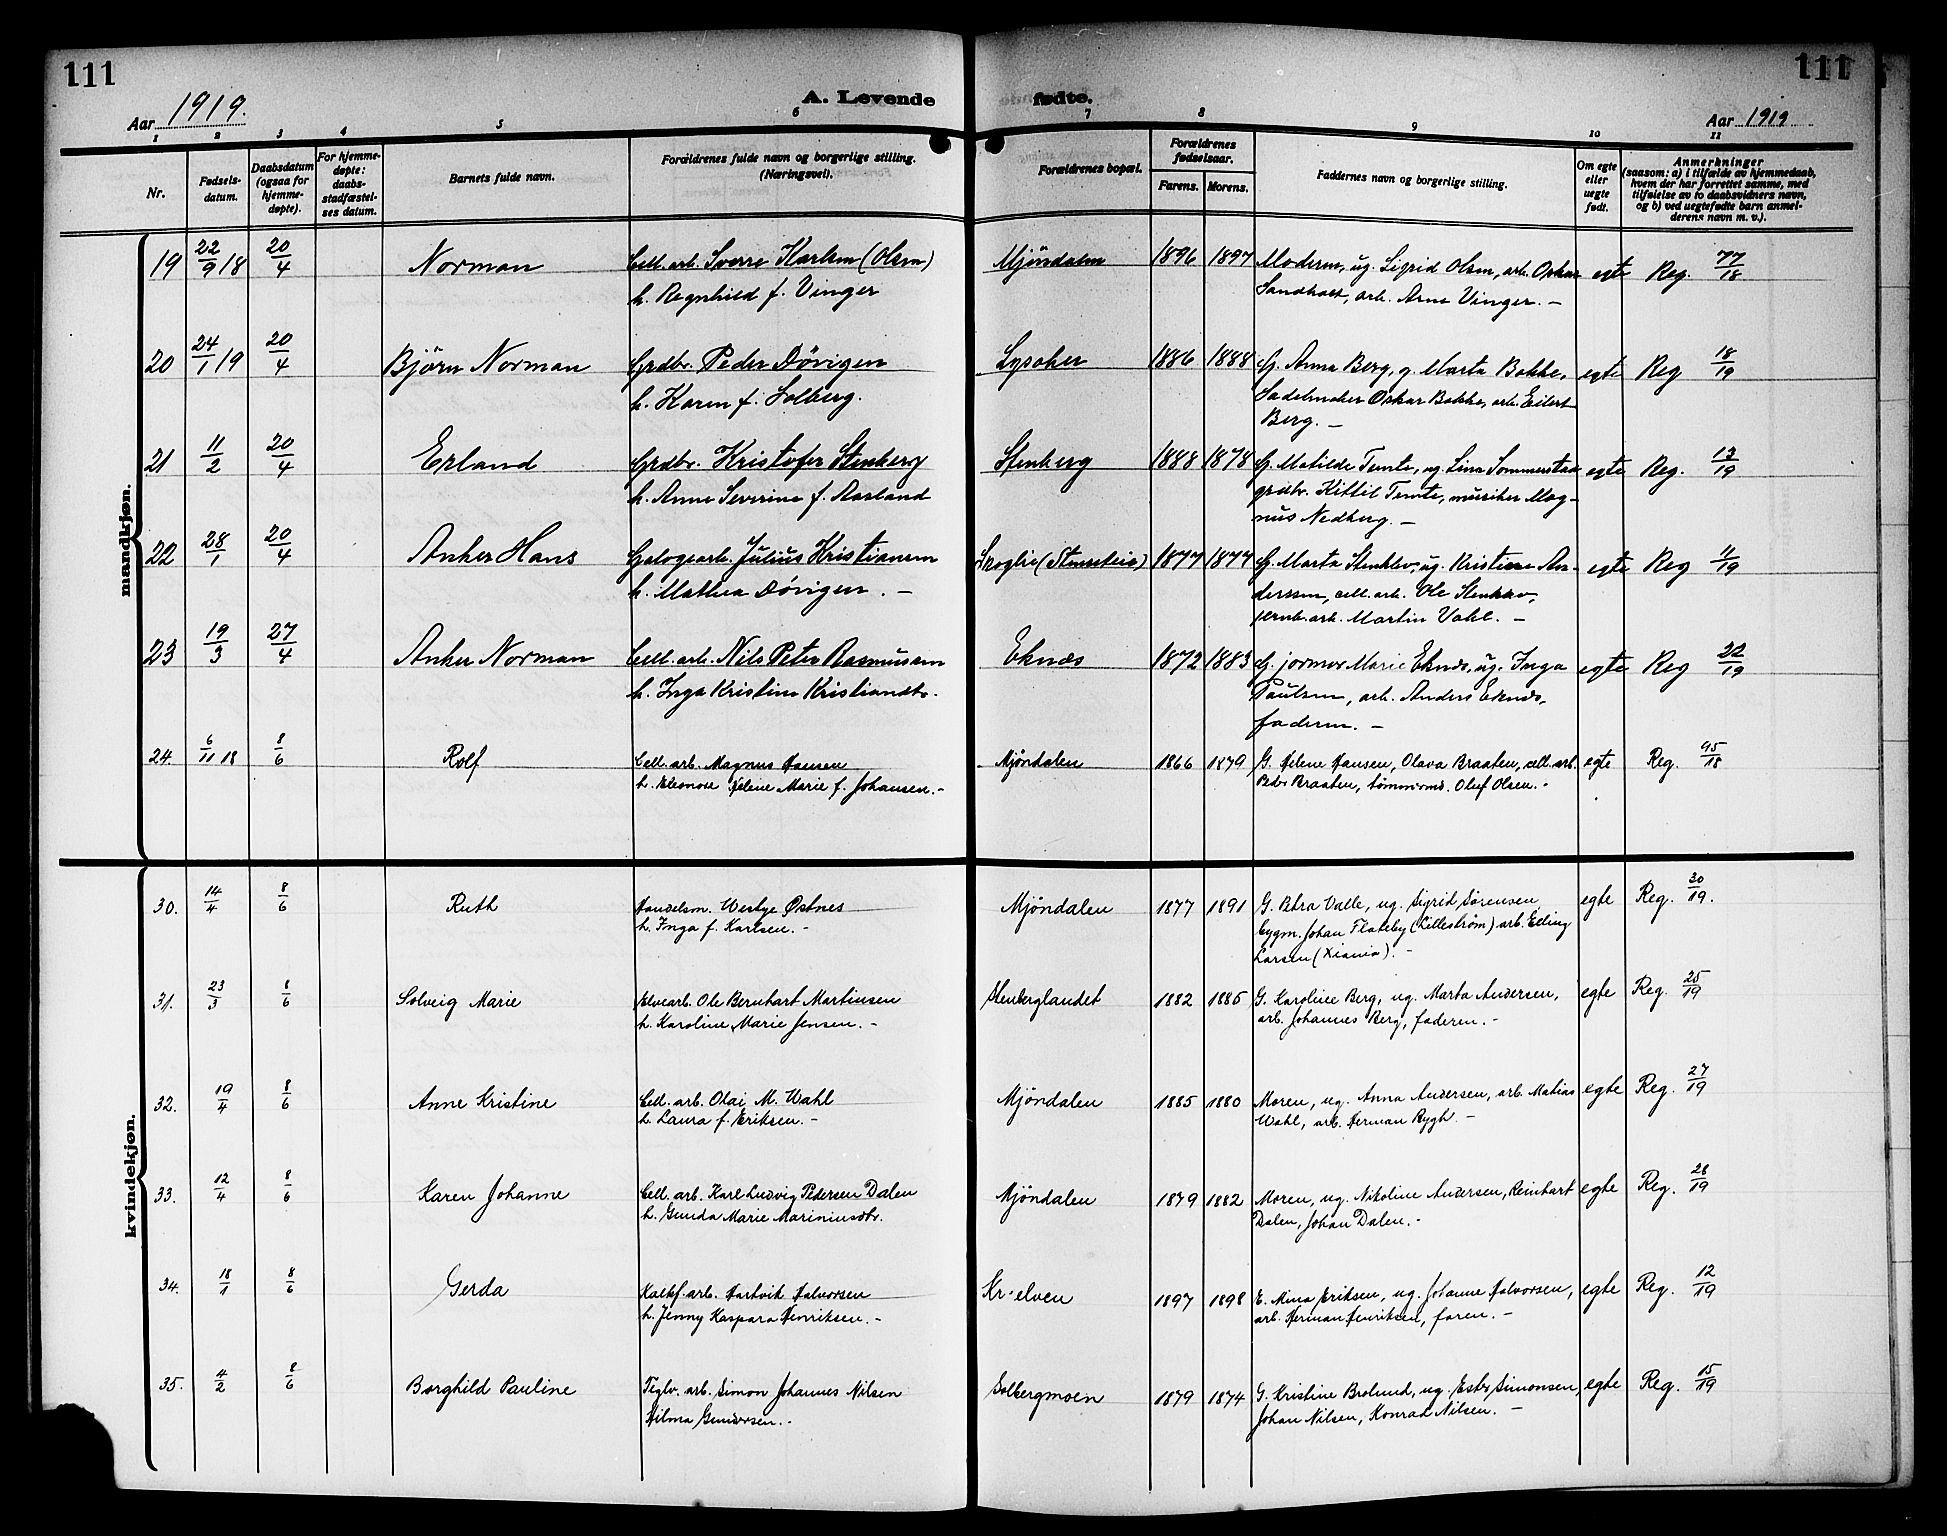 111
111
Aar 1919.
A. Levende
fødte.
Aar 1919
1 2 3 4 5 6 7 8 9 10 11
Nr.
Fødsels-
datum.
Daabsdatum
(ogsaa for
hjemme-
døpte).
For hjemme-
døpte:
daabs-
stadfæstel-
ses datum.
Barnets fulde navn.
Forældrenes fulde navn og borgerlige stilling.
(Næringsvei).
Forældrenes bopæl.
Forældrenes
fødselsaar.
Farens. Morens.
Faddernes navn og borgerlige stilling.
Om egte
eller
uegte
født.
Anmerkninger
(saasom: a) i tilfælde av hjemmedaab,
hvem der har forrettet samme, med
tilføielse av to daabsvidners navn,
og b) ved uegtefødte barn anmel-
derens navn m. v.).
mandkjøn.
19 22/9 18 20/4 Norman Cell. arb. Sverre Karlsen (Olsen) Mjöndalen 1896 1897 Moderen, ug. Sigrid Olsen, arb. Oskar egte Reg. 77/18
h. Ragnhild f. Vinger Sandholt, arb. Arne Vinger. —
20 24/1 19 20/4 Björn Norman Grdbr. Peder Dövigen Lysaker 1886 1888 G. Anna Berg, g. Marta Bakke, egte Reg 18/19
h. Karen f. Solberg. Sadelmaker Oskar Bakke, arb. Eilert
Berg. —
21 11/2 20/4 Erland Grdbr. Kristofer Stenberg Stenberg 1888 1878 G. Matilde Temte, ug. Lina Sommerstad egte Reg. 13/19
h. Anne Severine f. Aarland grdbr. Kittil Temte, musiker Mag-
nus Nedberg. —
22 28/1 20/4 Anker Hans arb. Julius Kristiansen 1877 1877 G. Marta Stenklev, ug. Kristine An- egte Reg 11/19
h. Mathea Dövigen. — derssen, cell. arb. Ole Stenklev,
jernb. arb. Martin Vahl. —
23 19/3 27/4 Anker Norman Cell. arb. Nils Peter Rasmussen Eknes 1872 1883 G. jormor Marie Eknes, ug. Inga egte Reg 22/19
h. Inga Kristine Kristiansdtr. Paulsen, arb. Anders Eknes,
faderen. —
24. 6/11 18 8/6 Rolf Cell. arb. Magnus Hansen Mjöndalen 1866 1879 G. Helene Hansen, Olava Braaten, cell. arb. egte Reg. 95/18
h. Eleonore Helene Marie f. Johansen. - Peder Braaten, tømmermd. Oluf Olsen. -
kvindekjøn.
30. 14/4 8/6 Ruth Handelsm. Westye Østnes Mjöndalen 1877 1891 G. Petra Valle, ug. Sigrid Sørensen egte Reg. 30/19.
h. Inga f. Karlsen. - bygm. Johan Flateby (Lillestrøm) arb. Elling
Larsen (Xiania). -
31. 23/3 8/6 Solveig Marie Elvearb. Ole Bernhart Martinsen Stenberglandet 1882 1885 G. Karoline Berg, ug. Marta Andersen, egte Reg. 25/19
h. Karoline Marie Jensen. - arb. Johannes Berg, faderen. -
32. 19/4 8/6 Anne Kristine Cell. arb. Olai M. Wahl Mjöndalen 1885 1880 Moren, ug. Anna Andersen, arb. Matias egte Reg. 27/19
h. Laura f. Eriksen. - Wahl, arb. Herman Rygh. -
33. 12/4 8/6 Karen Johanne Cell. arb. Karl Ludvig Pedersen Dalen Mjöndalen 1879 1882 Moren, ug. Nikoline Andersen, Reinhart egte Reg. 28/19
h. Gunda Marie Mariniusdtr. Dalen, Johan Dalen. -
34. 18/1 8/6 Gerda Kalkf. arb. Hartvik Halvorsen Kr-elven 1897 1898 E. Mina Eriksen, ug. Johanne Halvorsen, egte Reg. 12/19
h. Jenny Kaspara Henriksen. - arb. Herman Henriksen, faren. -
35. 4/2 8/6 Borghild Pauline Teglv. arb. Simon Johannes Nilsen Solbergmoen 1879 1874 G. Kristine Brolund, ug. Ester Simonsen, egte Reg. 15/19
Hilma Gundersen. - Johan Nilsen, Konrad Nilsen. -